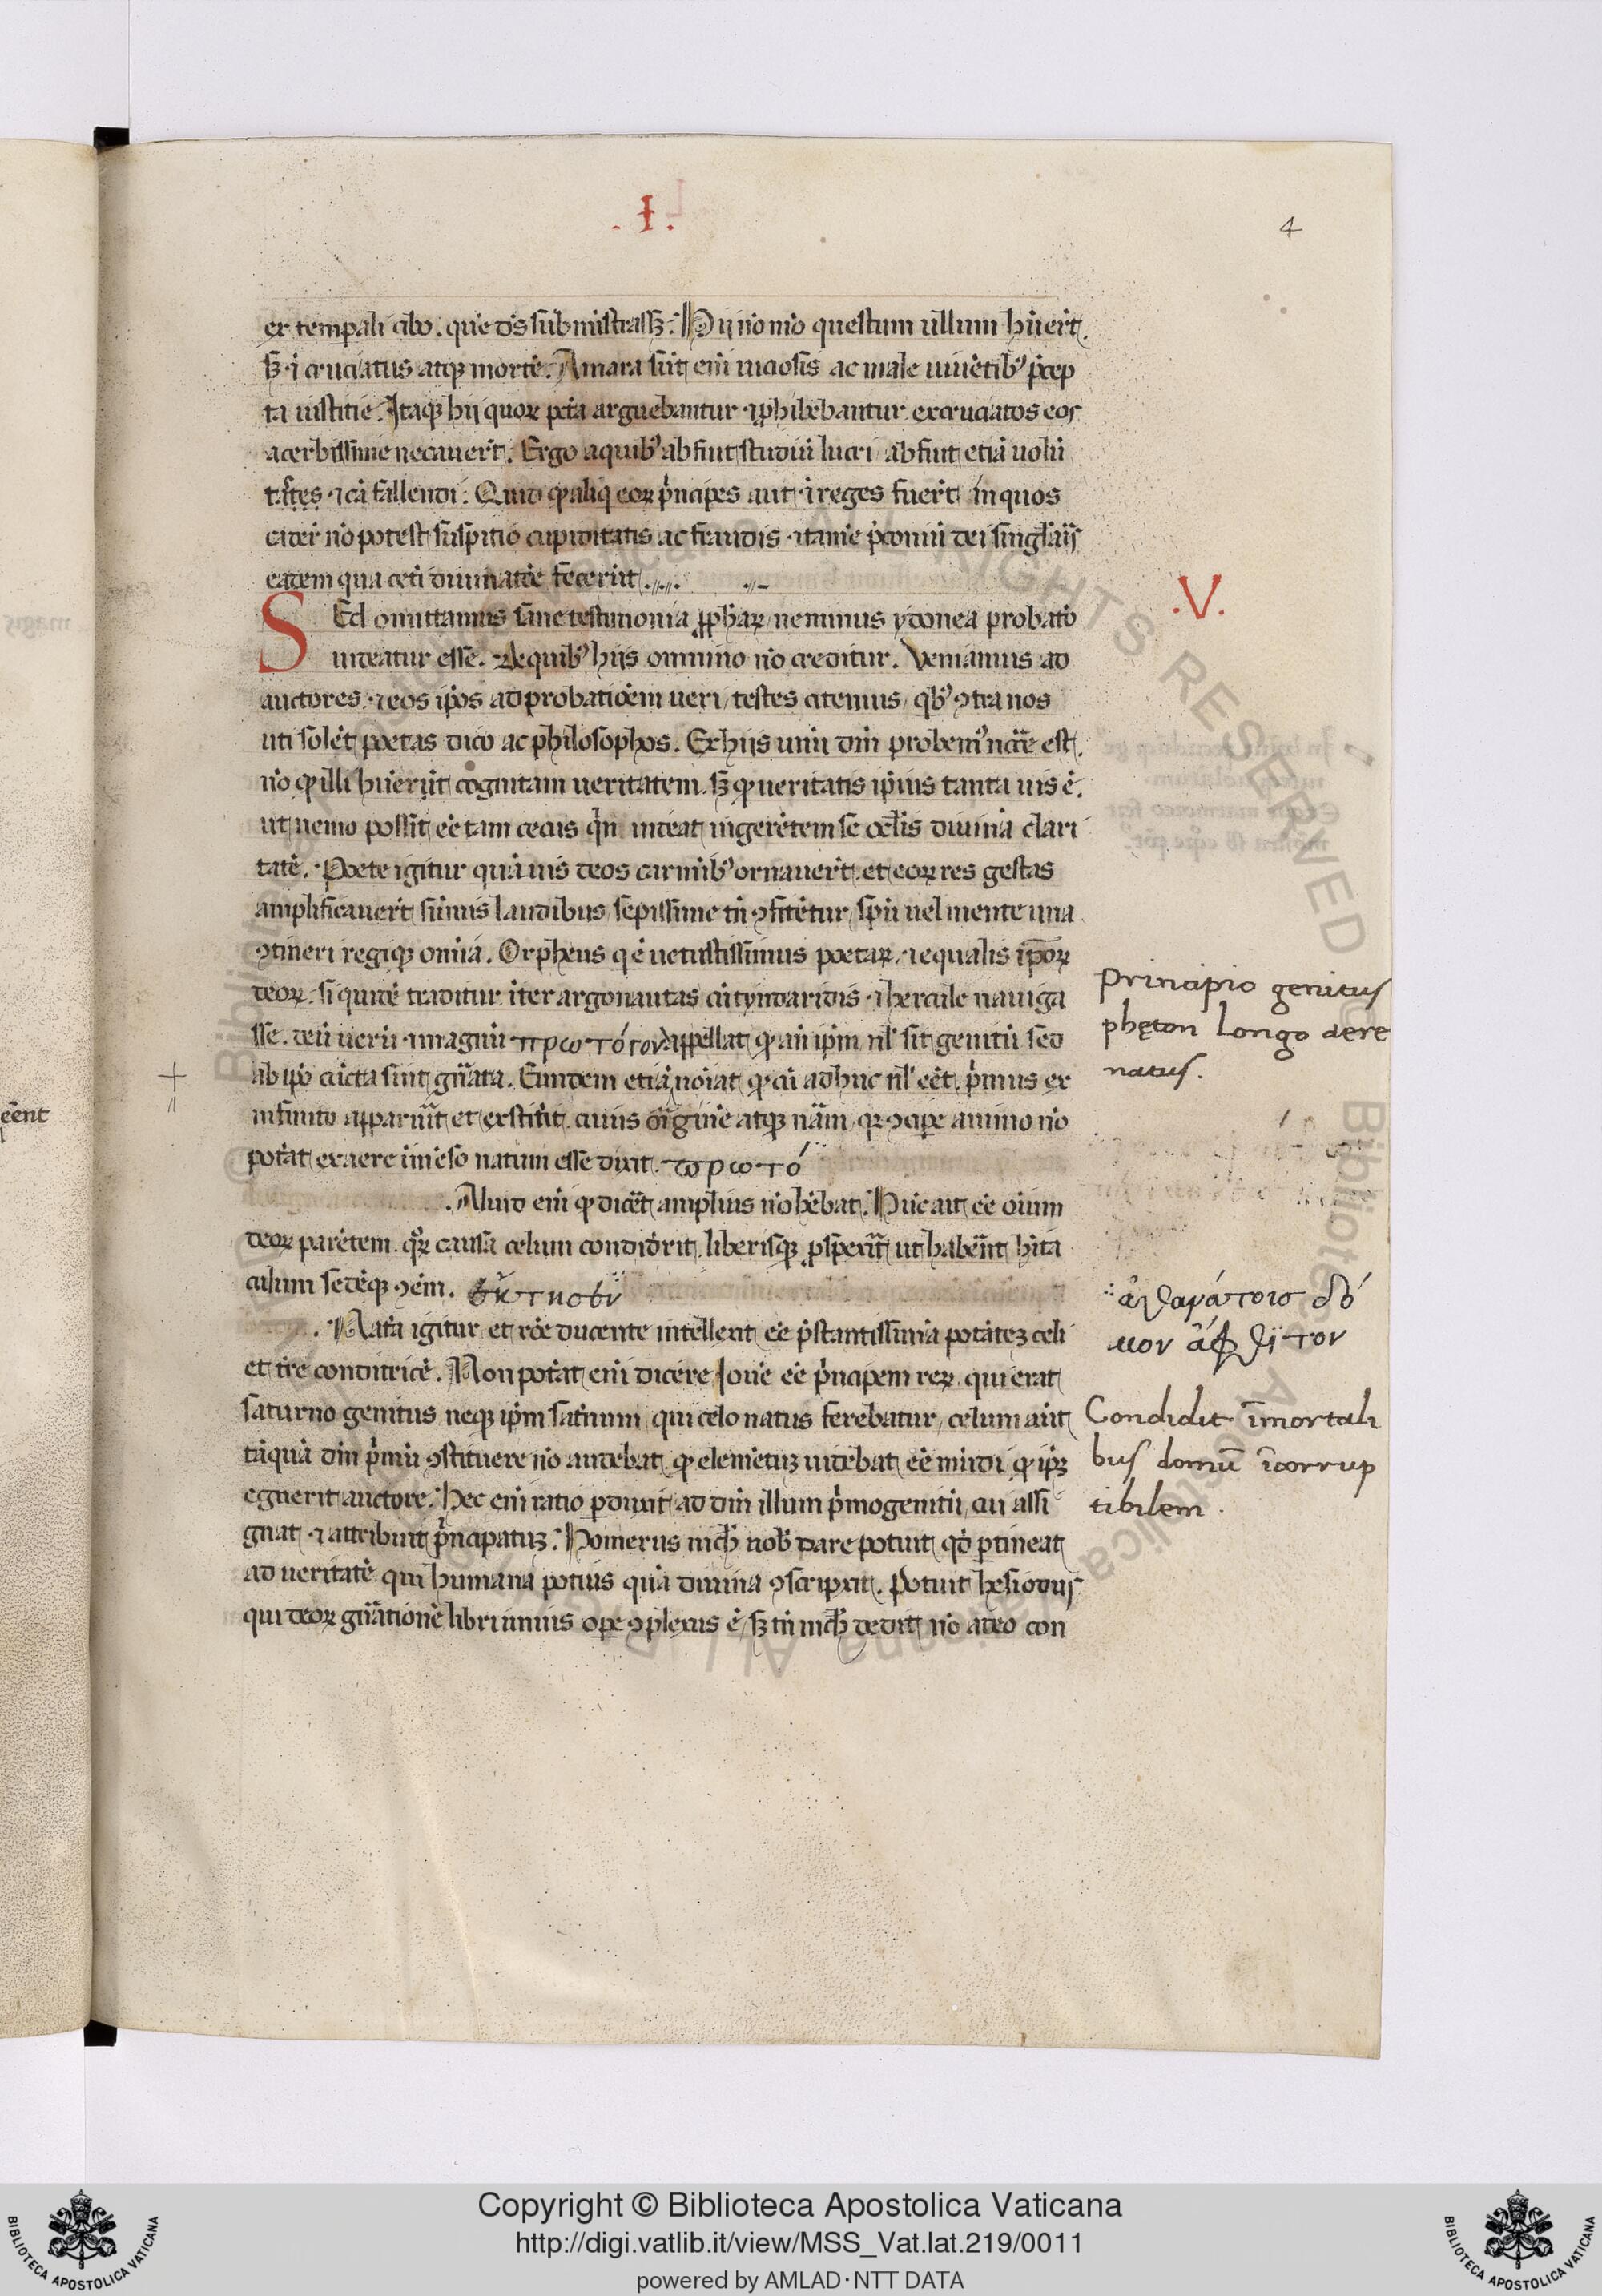 .I.
4
ex tempali cibo. que ds̄ submistrass3. Hij nō mō questum ullum hūert̄.
s3 ī cruciatus atq3 mortē. Amara sūt enī uiciosis ac male uiuētib9 p̄cep
ta iustitie. Itaq3 hij quor3 pctā arguebantur ⁊ phibebantur excruciatos eos
acerbissime necauert̄. Ergo a quib9 abfuit studiū lucri abfuit etiā uolū
tates ⁊ cā fallendi. Quid ꝙ aliq eor3 p̄ncipes aut ī reges fuert̄ in quos
cader nō potest suspitio cupiditatis ac fraudis ⁊ tamē
eadem qua cetī diuinatōe fecerūt
.V.
SEd omittamus sane testimonia ꝓphar3 ne minus ydonea probatō
uideatur esse. de quib9 hijs omnino nō creditur. Veniamus ad
auctores ⁊ eos ip̄os ad probatiōem ueri testes citemus qb9 ꝯtra nos
uti solēt poetas dico ac philosophos. Ex hijs unū dm̄ probem9 nccē est.
nō ꝙ illi hūerūt cognitam ueritatem. s3 ꝙ ueritatis ip̄ius tanta uis ē.
ut nemo possit eē tam cecus qn̄ uideat ingerētem se oclis diuinā clari
tatē. Poete igitur quāuis deos carmīb9 ornauert̄ et eor3 res gestas
amplificauert̄ sūmis laudibus sepissime tn̄ ꝯfitētur spū uel mente una
ꝯtineri regiq3 omīa. Orpheus q ē uetustissimus poetar3 ⁊ equalis ip̄or3
deor3. si quidē traditur iter argonautas cū tyndaridis ⁊ hercule nauiga
sse. deū uerū ⁊ magnū πρωτόγον appellat ꝙ an̄ ip̄m nl̄ sit genitū sed
ab ip̄o cūcta sint gnāta. Eundem etiā noīat ꝙ cū adhuc nl̄ eēt. p̄mus ex
infinito apparuit et extitit cuius originē atq3 nām qr ꝯcipe animo nō
potāt ex aere īmēso natum esse dixit. πρωτό
Principio genitus
phęton longo aere
natus.
Aliud enī ꝙ dicēt amplius nō hēbat. Hūc ait eē oīum
deor3 parētem. qr̄ causa celum condidīt liberisq3 ꝓspexīt ut habēnt hīta
culum sedēq3 ꝯēm. ἔκτισεν
ἀθανάτοισ δό
μον ἄφθιτον
Natā igitur et rōe ducente intellexit eē p̄stantissimā potātē3 celi
et tre conditricē. Non potāt enī dicere Iouē eē p̄ncipem rer3 qui erat
saturno genitus neq3 ip̄m satnum qui celo natus ferebatur. celum aūt
tāquā dm̄ p̄mū ꝯstituere nō audebat ꝙ elemētu3 uidebat eē mūdi
Condidit īmortali
bus domū īcorrup
tibilem.
eguerit auctore. Hec enī ratio pduxit ad dm̄ illum p̄mogenitū cui assi
gnat ⁊ attribuit p̄ncipatu3. Homerus nich̄ nob̄ dare potuit qd̄ ptineat
ad ueritatē qui humana potius quā diuina ꝯscripxit. Potuit hesiodus
qui deor3 gnātionē libri unius ope ꝯplexus ē s3 tn̄ nich̄ dedit nō adeo con
Copyright © Biblioteca Apostolica Vaticana
http://digi.vatlib.it/view/MSS_Vat.lat.219/0011
powered by AMLAD·NTT DATA